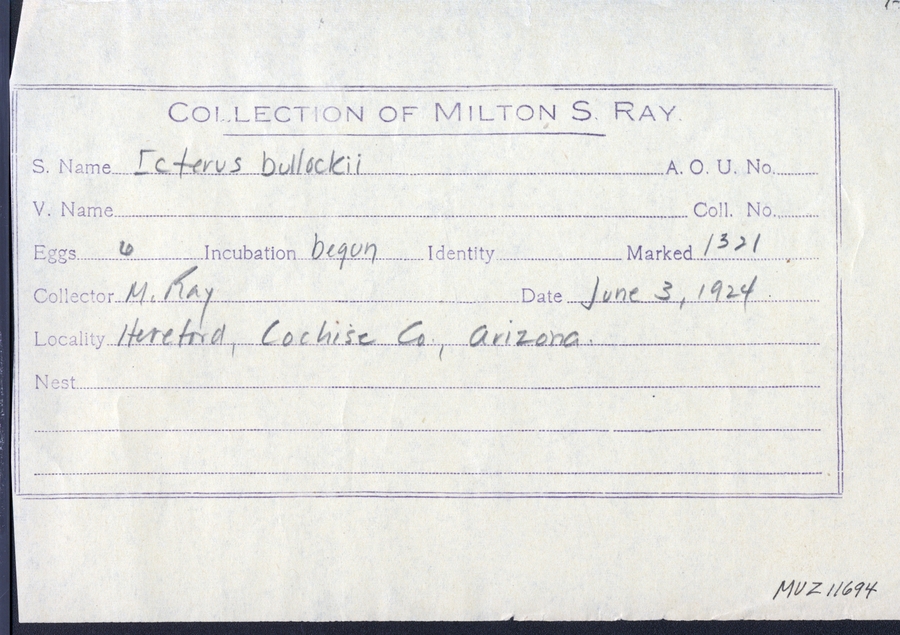 COLLECTION OF MILTON S. RAY.
S. Name Icterus bullockii A. O. U. No.
V. Name Coll. No.
Eggs 6 Incubation begun Identity Marked 1321
Collector M. Ray Date June 3, 1924
Locality Hereford, Cochise Co., Arizona.
Nest
MVZ 11694